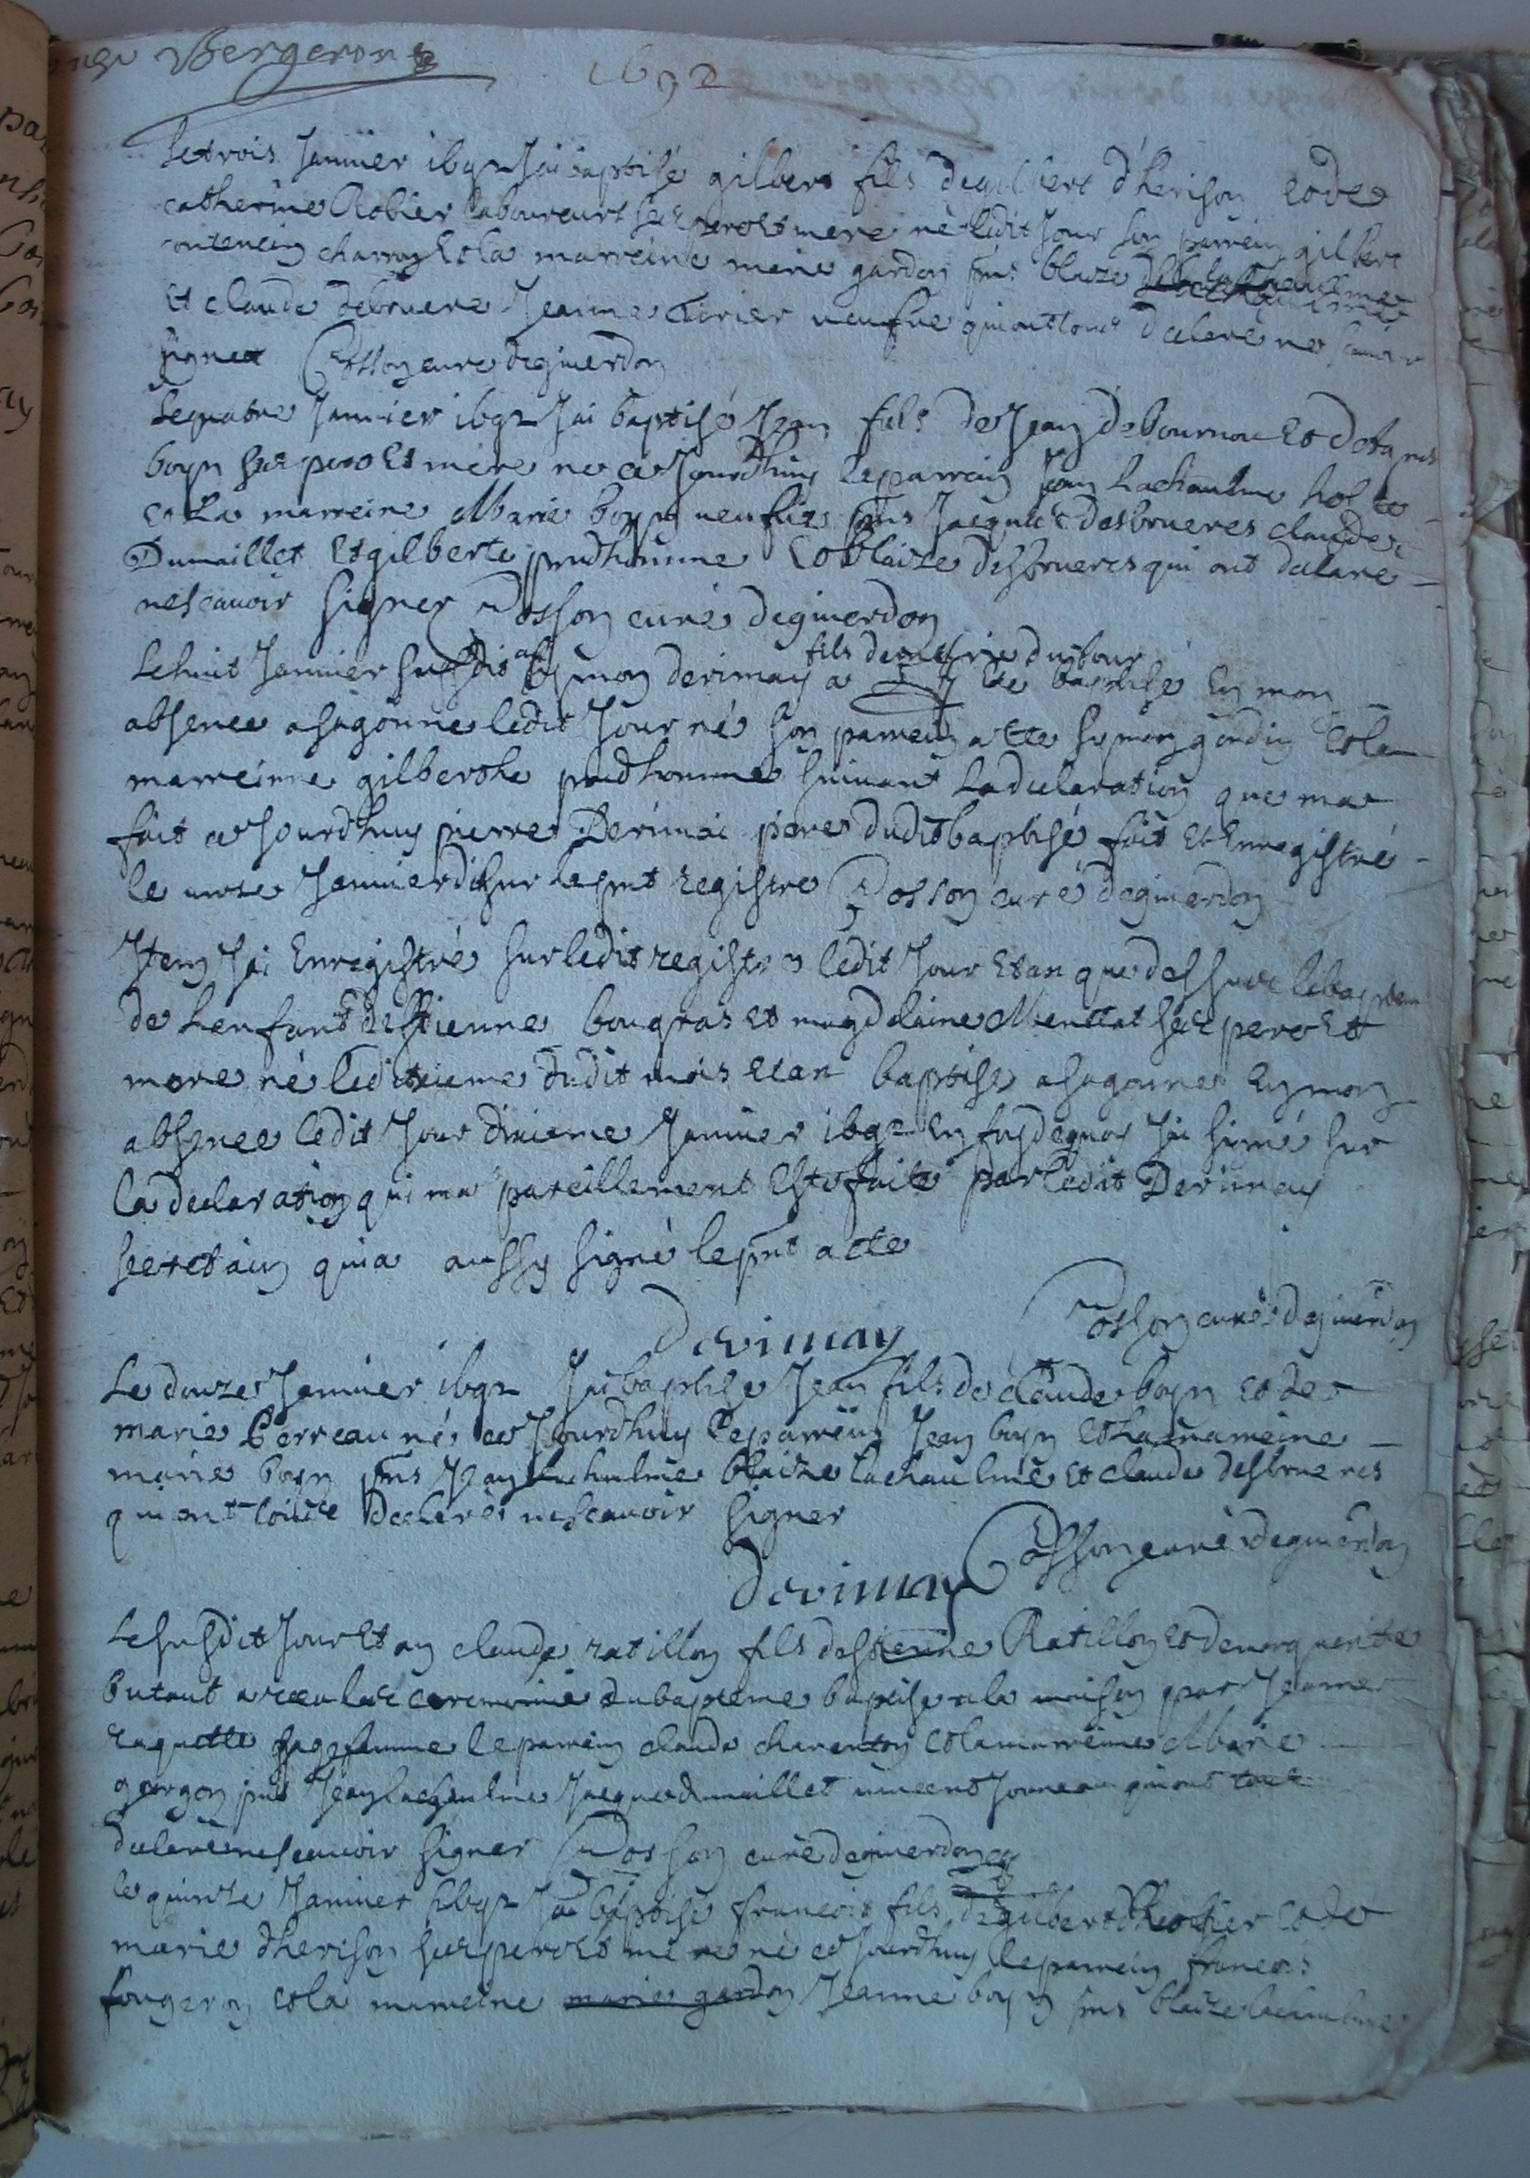 Bergeron
1692
Le trois Janvier 1692 Jai baptisé gilbert fils de gilbert d'herison et de
catherine Robier laboureurs ses pere et mere né ledit Jour son parrein gilbert
et la marreine marie gardon pnts blaize
et claude debruere Jeanne veufve qui ont tous declaré ne scavoir
signer Posson curé degiverdon
Le quatre Janvier 1692 Jai baptisé Jean fils de Jean debournou et de
boyn ses pere et mere né ce Jourdhuy le parrein Jean Lachaulme
et La marreine Marie boyn pnts Jacques desbrueres claude
Dumaillet et gilberte prudhomme et blaize desbrueres qui ont declaré
ne scavoir signer Posson curé degiverdon
Le huit Janvier susdit an Symon derimay fils de marie dubour a été baptisé en mon
absence a sagonne ledit Jour né son parrein a été symon gondin et la
marreinne gilberthe prudhomme suivant La declaration que ma
fait ce Jourdhuy pierre Derimai pere dudit baptisé fait et Enregistré
le unze Janvier dit sur le pnt registre Posson curé degiverdon
Item Jai Enregistré sur ledit registre ledit Jour et an que dessus le baptem
de Lenfant destienne bougras et magdelaine Menetat ses pere et
mere né le dixieme dudit mois et an baptisé a sagonne en mon
absence ledit Jour dixieme Janvier 1692 en foy de quoy Jai signé sur
la declaration qui ma pareillement Esté faite par ledit Derimay
secretain qui a aussy signé le pnt acte
Derimay Posson curé degiverdon
Le douze Janvier 1692 Jai baptisé Jean fils de claude boyn et de
marie Perreau né ce Jourdhuy le parrein Jean boyn et la marreine
marie boyn pnts Jean Lachaulme blaize lachaulme et claude desbrueres
qui ont tous declaré ne scavoir signer
Derimay Posson curé degiverdon
Le susdit Jour et an claude ratillon fils destienne Ratillon et de marguerite
butaut a receu les ceremonie du bapteme baptisé a la maison par Jeanne
raquette sagefemme le parrein claude charenton et la marreine Marie
gorgon pnts Jean lachaulme Jacques dumaillet vincent Jonneau qui ont tous
declaré ne scavoir signer Posson curé degiverdon
le quinze Janvier 1692 Jai baptisé francois fils de gilbert et de
marie dherison ses pere et mere né ce Jourdhuy le parrein francois
fougeron et la marreine marie gardon Jeanne boyn pnts blaize lachaulme